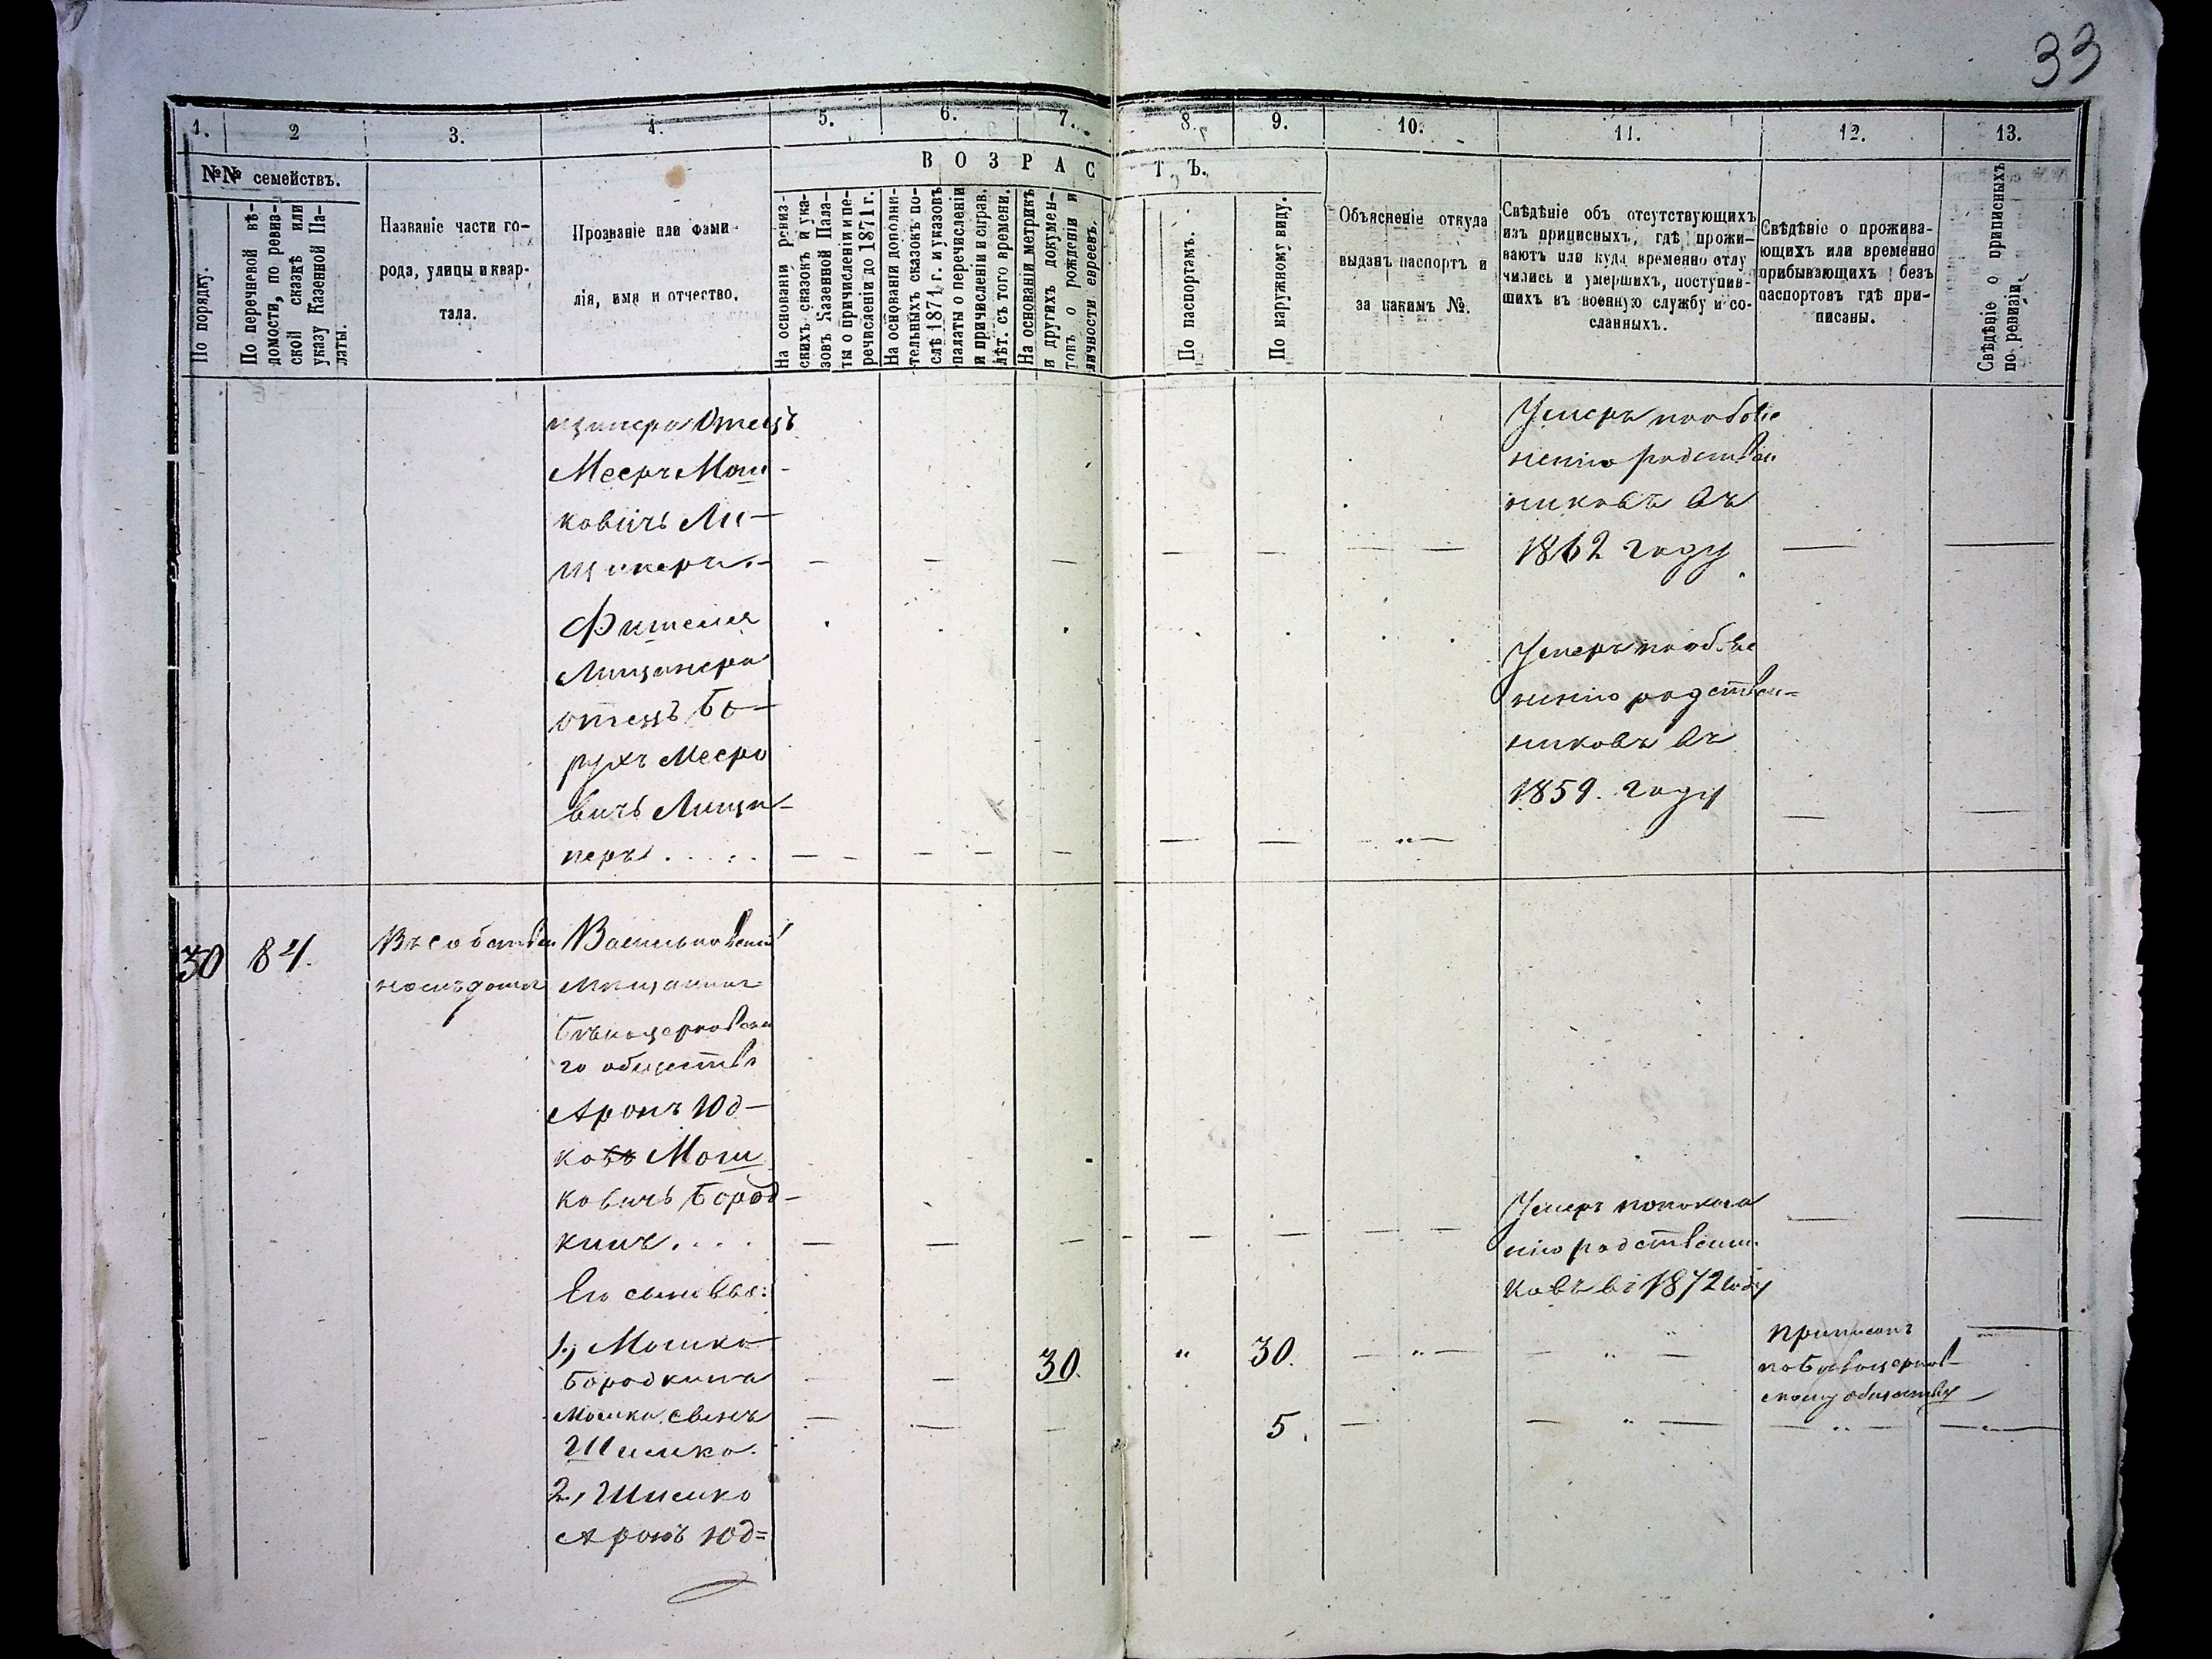 33
1. 2 3. 4. 5. 6. 7. 8. 9. 10. 11. 12. 13.
№№ семействъ.
В О З Р А С Т Ъ.
По порядку.
По перечневой вѣ-
домости, по ревиз-
ской сказкѣ или
указу Казенной Па-
латы.
Названіе части го-
рода, улицы и квар-
тала.
Прозваніе или фами-
лія, имя и отчество.
На основаніи ревиз-
скихъ сказокъ и ука-
зовъ Казенной Пала-
ты о причисленіи и пе-
речисленіи до 1871 г.
На основаніи дополни-
тельныхъ сказокъ по-
слѣ 1871 г. и указовъ
палаты о перечисленіи
и причисленіи и справ.
лѣт. съ того времени.
На основаніи метрикъ
и другихъ докумен-
товъ о рожденіи и
личности евреевъ.
По паспортамъ.
По наружному виду.
Объясненіе откуда
выданъ паспортъ и
за какимъ №.
Свѣдѣніе объ отсутствующихъ
изъ приписныхъ, гдѣ прожи-
ваютъ или куда временно отлу
чились и умершихъ, поступив-
шихъ въ военную службу и со-
сланныхъ.
Свѣдѣніе о прожива-
ющихъ или временно
прибывающихъ безъ
паспортовъ гдѣ при-
писаны.
Свѣдѣніе о приписныхъ
по ревизіи.
щинера Отецъ
Мееръ Мош-
ковичъ Ли-
щинеръ.
Фишеля
Лищинера
отецъ Бо-
рухъ Мееро
вичъ Лищи-
неръ
Умеръ по объяс
ненію родствен
никовъ въ
1862 году
Умеръ по объяс
ненію родствен-
никовъ въ
1859. году
30 84. Въ собствен
номъ домѣ
Васильковскій
Мѣщанинъ
Бѣлоцерковска
го общества
Аронъ Юд-
ко Мош
ковичъ Бород-
кинъ.
Его сыновья:
1., Мошко
Бородкина
Мошки сынъ
Шимко.
2., Шимко
Аронъ Юд=
Умеръ по показа
нію родственни-
ковъ въ 1872 году
30. " 30.
5.
Приписанъ
къ Бѣлоцерков-
скому обществу